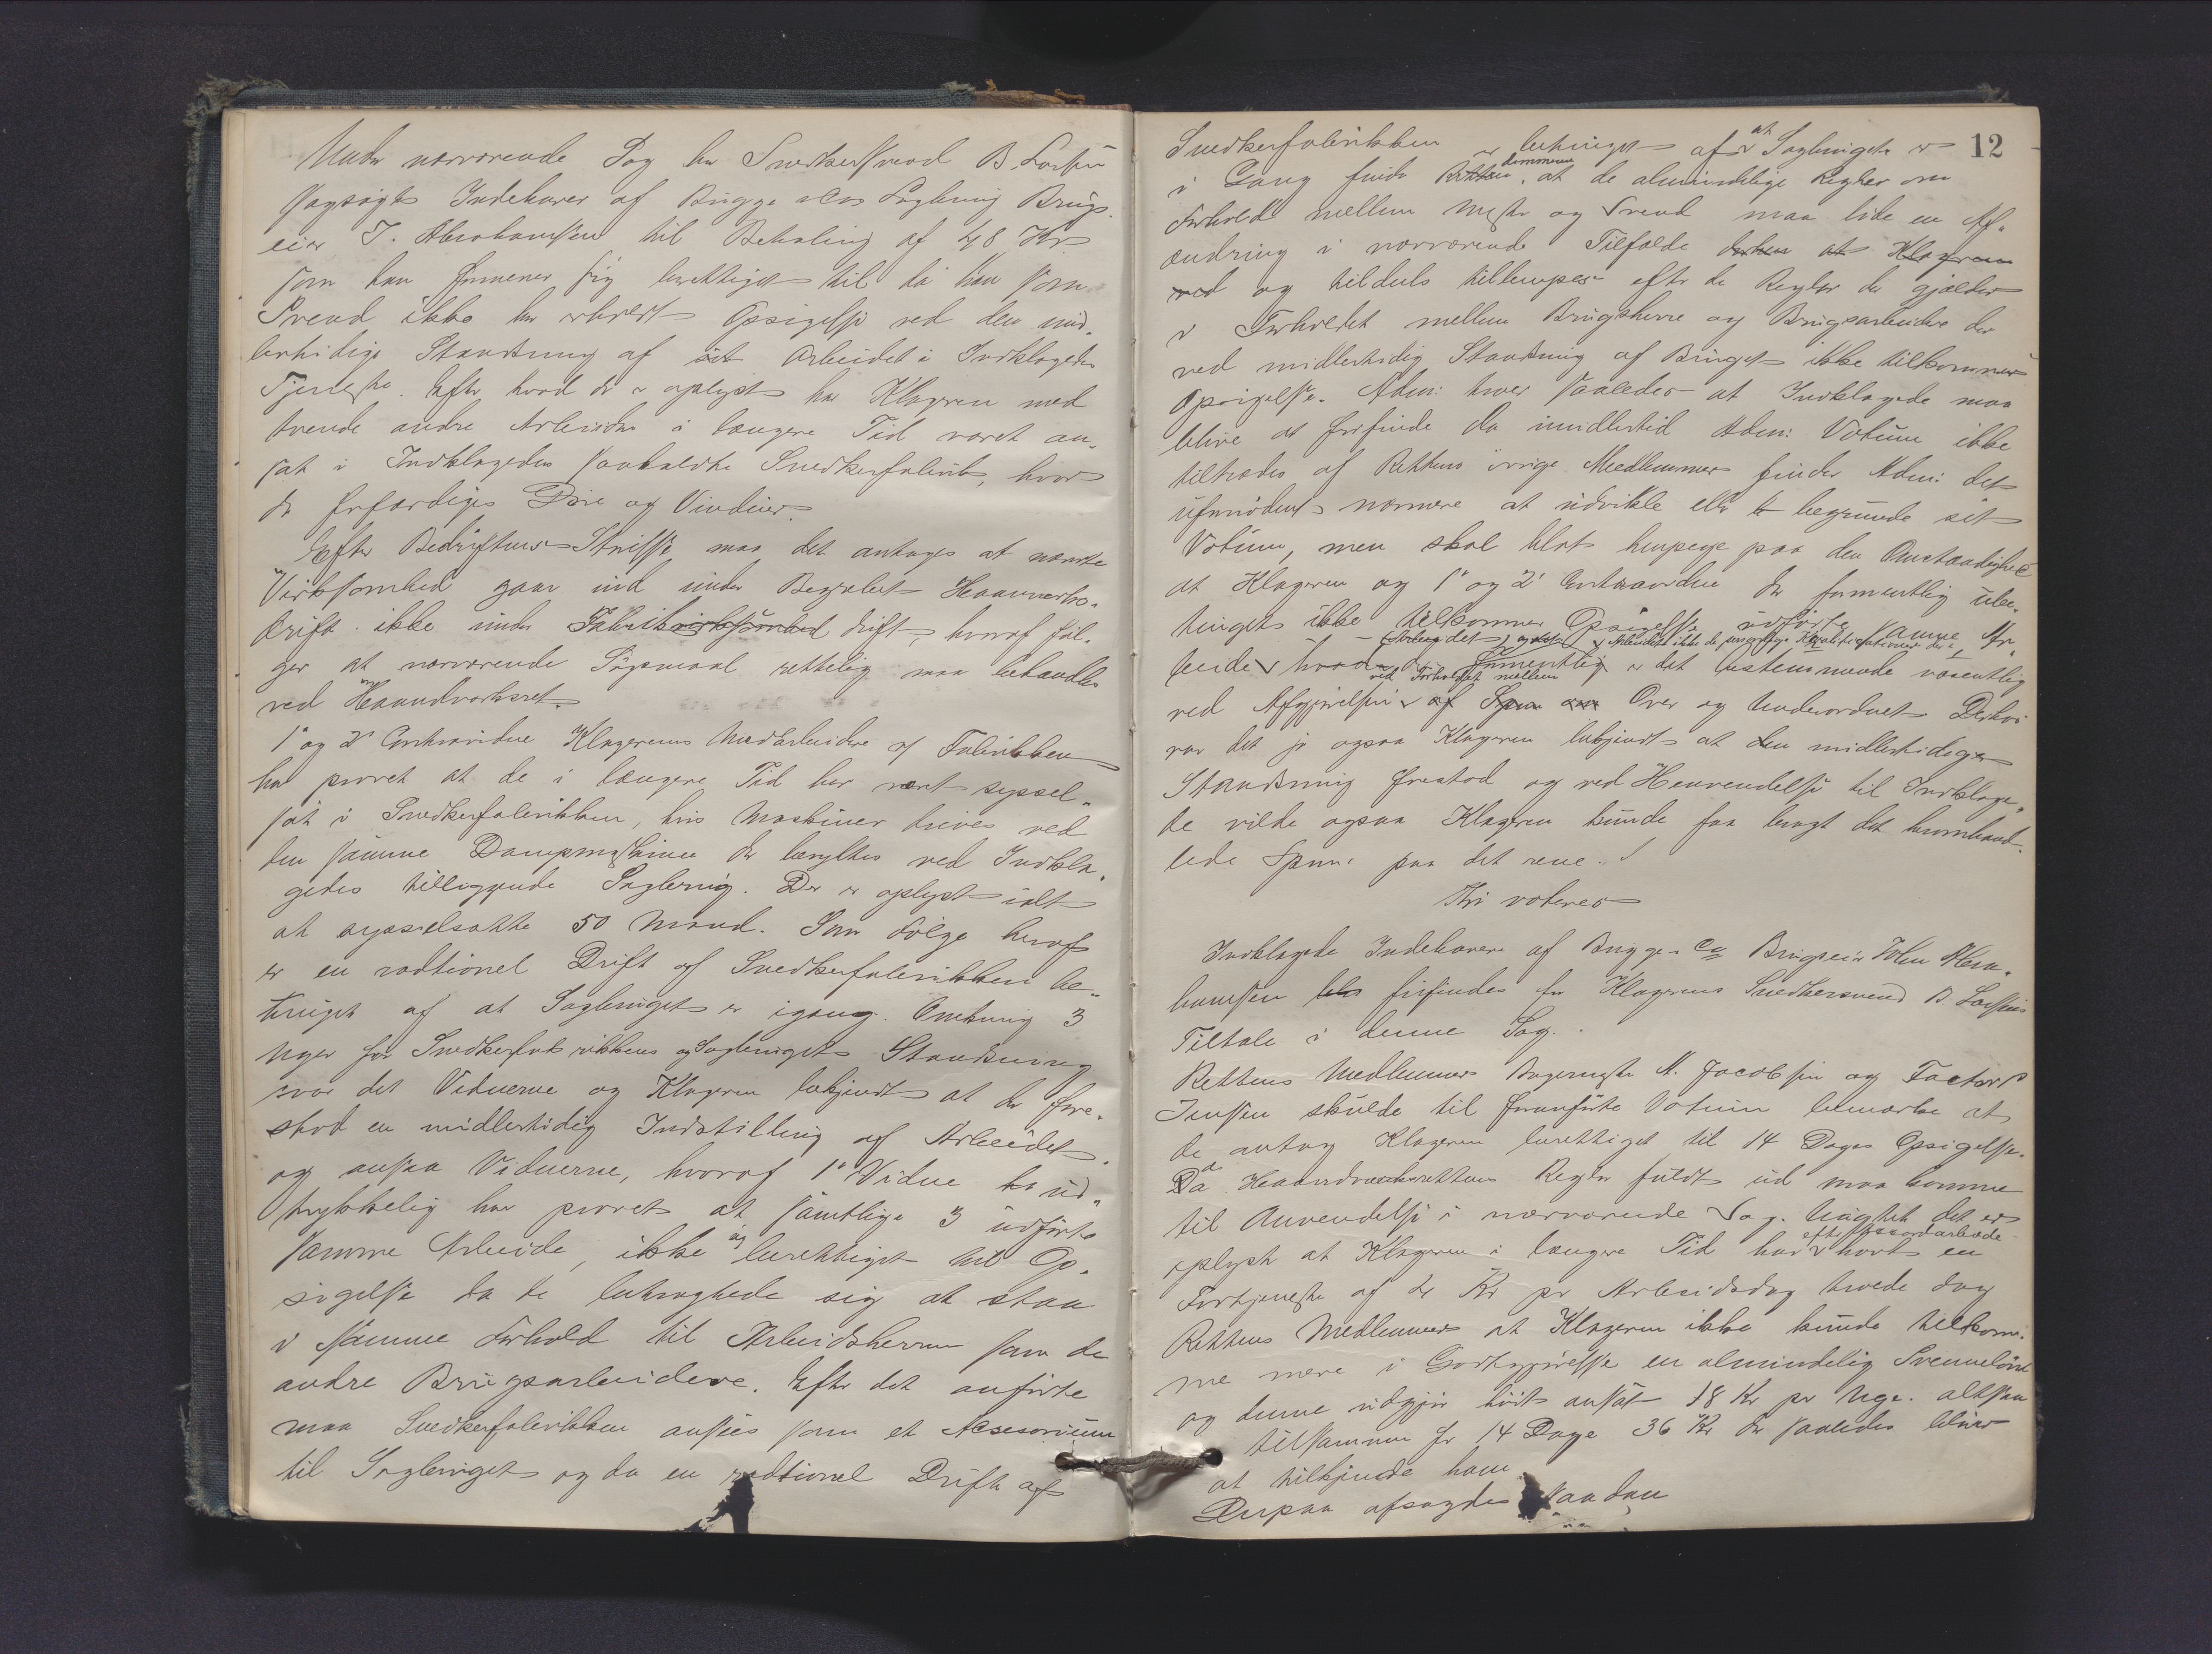 Under nærværende Sag har Snedkersvend B. Larsen
sagsøgt Indehaver af Brygge & Cos Sagbrug Brugs-
eier J. Abrahamsen til Betaling af 48 Kr
som han formener sig berettiget til da han som
Svend ikke har erholdt Opsigelse ved den mid-
lertidige Standsning af sit Arbeidet i Indklagedes
Tjeneste. Efter hvad der er oplyst har Klageren med
tvende andre Arbeidere i længere Tid været an-
sat i Indklagedes saakaldte Snedkerfabrik, hvor
der forfærdiges Døre og Vinduer.
Efter Bedriftens Størrelse maa det antages at nævnte
Virksomhed gaar ind under Begrebet Haandverks-
drift ikke under Fabrikvirksomhed drift, hvoraf føl-
ger at nærværende Søgsmaal rettelig maa behandles
ved en Haandverksret.
1ste og 2det Contravidne Klagerens Medarbeidere af Fabrikken
har provet at de i længere Tid har været syssel-
sat i Snedkerfabrikken, hvis Maskiner drives ved
den samme Dampmaskine der benyttes ved Indkla-
gedes tilliggende Sagbrug. Der er oplyst ialt
at sysselsætte 50 Mand. Som Følge heraf
er en radtionel Drift af Snedkerfabrikken be-
tinget af at Sagbruget er igang. Omkring 3
Uger før Snedkerfabrikkens og Sagbrugets Standsning
var det Vidnerne og Klageren bekjendt at der fore-
stod en midlertidig Indstilling af Arbeidet
og ansaa Vidnerne, hvoraf 1ste Vidne har ud-
trykkelig har provet at samtlige 3 udførte
samme Arbeide, ikke sig berettiget til Op-
sigelse da de betragtede sig at staa
i samme Forhold til Arbeidsherren som de
andre Brugsarbeidere. Efter det anførte
maa Snedkerfabrikken ansees som et Acsesorium
til Sagbruget og da en radtionel Drift af
12
Snedkerfabrikken er betinget af at Sagbruget er
i Gang finder Rettens Formand, at de almindelige Regler om
Forhold mellem Mester og Svend maa lide en Af-
ændring i nærværende Tilfælde derhen at Klageren
ved og tildels tillempes efter de Regler der gjælder
i Forholdet mellem Brugsherre og Brugsarbeidere der
ved midlertidig Standsning af Bruget ikke tilkommer
Opsigelse. Adm: tror saaledes at Indklagede maa
blive at frifinde da imidlertid Adm: Votum ikke
tiltrædes af Rettens øvrige Meedlemmer finder Adm: det
ufornødent nærmere at udvikle eller be begrunde sit
Votum, men skal blot henpege paa den Omstændighed
at Klageren og 1ste og 2det Contravidne der formentlig ube-
tinget ikke tilkommer Opsigelse udførte samme Ar-
beide (Arbeidet) og at Arbeidets ikke de personlige Kvalifikationer der
hvad der formentlig er det bestemmende væsentlig
ved Afgjørelsen ved Forholdet mellem af Spm om Over og Underordnet Derhos
var det jo ogsaa Klageren bekjendt at den midlertidige
Standsning forestod og ved Henvendelse til Indklage-
de vilde ogsaa Klageren kunde faa bragt det omhand-
lede Spm: paa det rene.
Thi voteres
Indklagede Indehaveren af Brygge & Co Brugseier John Abra-
hamsen bør frifindes for Klagerens Snedkersvend B. Larsens
Tiltale i denne Sag.
Rettens Medlemmer Bagermester M. Jacobsen og Factor P
Jensen skulde til foranførte Votum bemærke at
de antog Klageren berettiget til 14 Dages Opsigelse.
Da Haandverksrettens Regler fuldt ud maa komme
til Anvendelse i nærværende Sag. Uagtet det er
oplyst at Klageren i længere Tid har efter Akkordarbeide havt en
Fortjeneste af 4 Kr pr Arbeidsdag troede dog
Rettens Medlemmer at Klageren ikke kunde tilkom-
me mere i Godtgjørelse en almindelig Svennelønn
og denne udgjør høit ansat 18 Kr pr Uge. altsaa
tilsammen for 14 Dage 36 Kr der saaledes bliver
at tilkjende ham
Derpaa afsagdes saadan